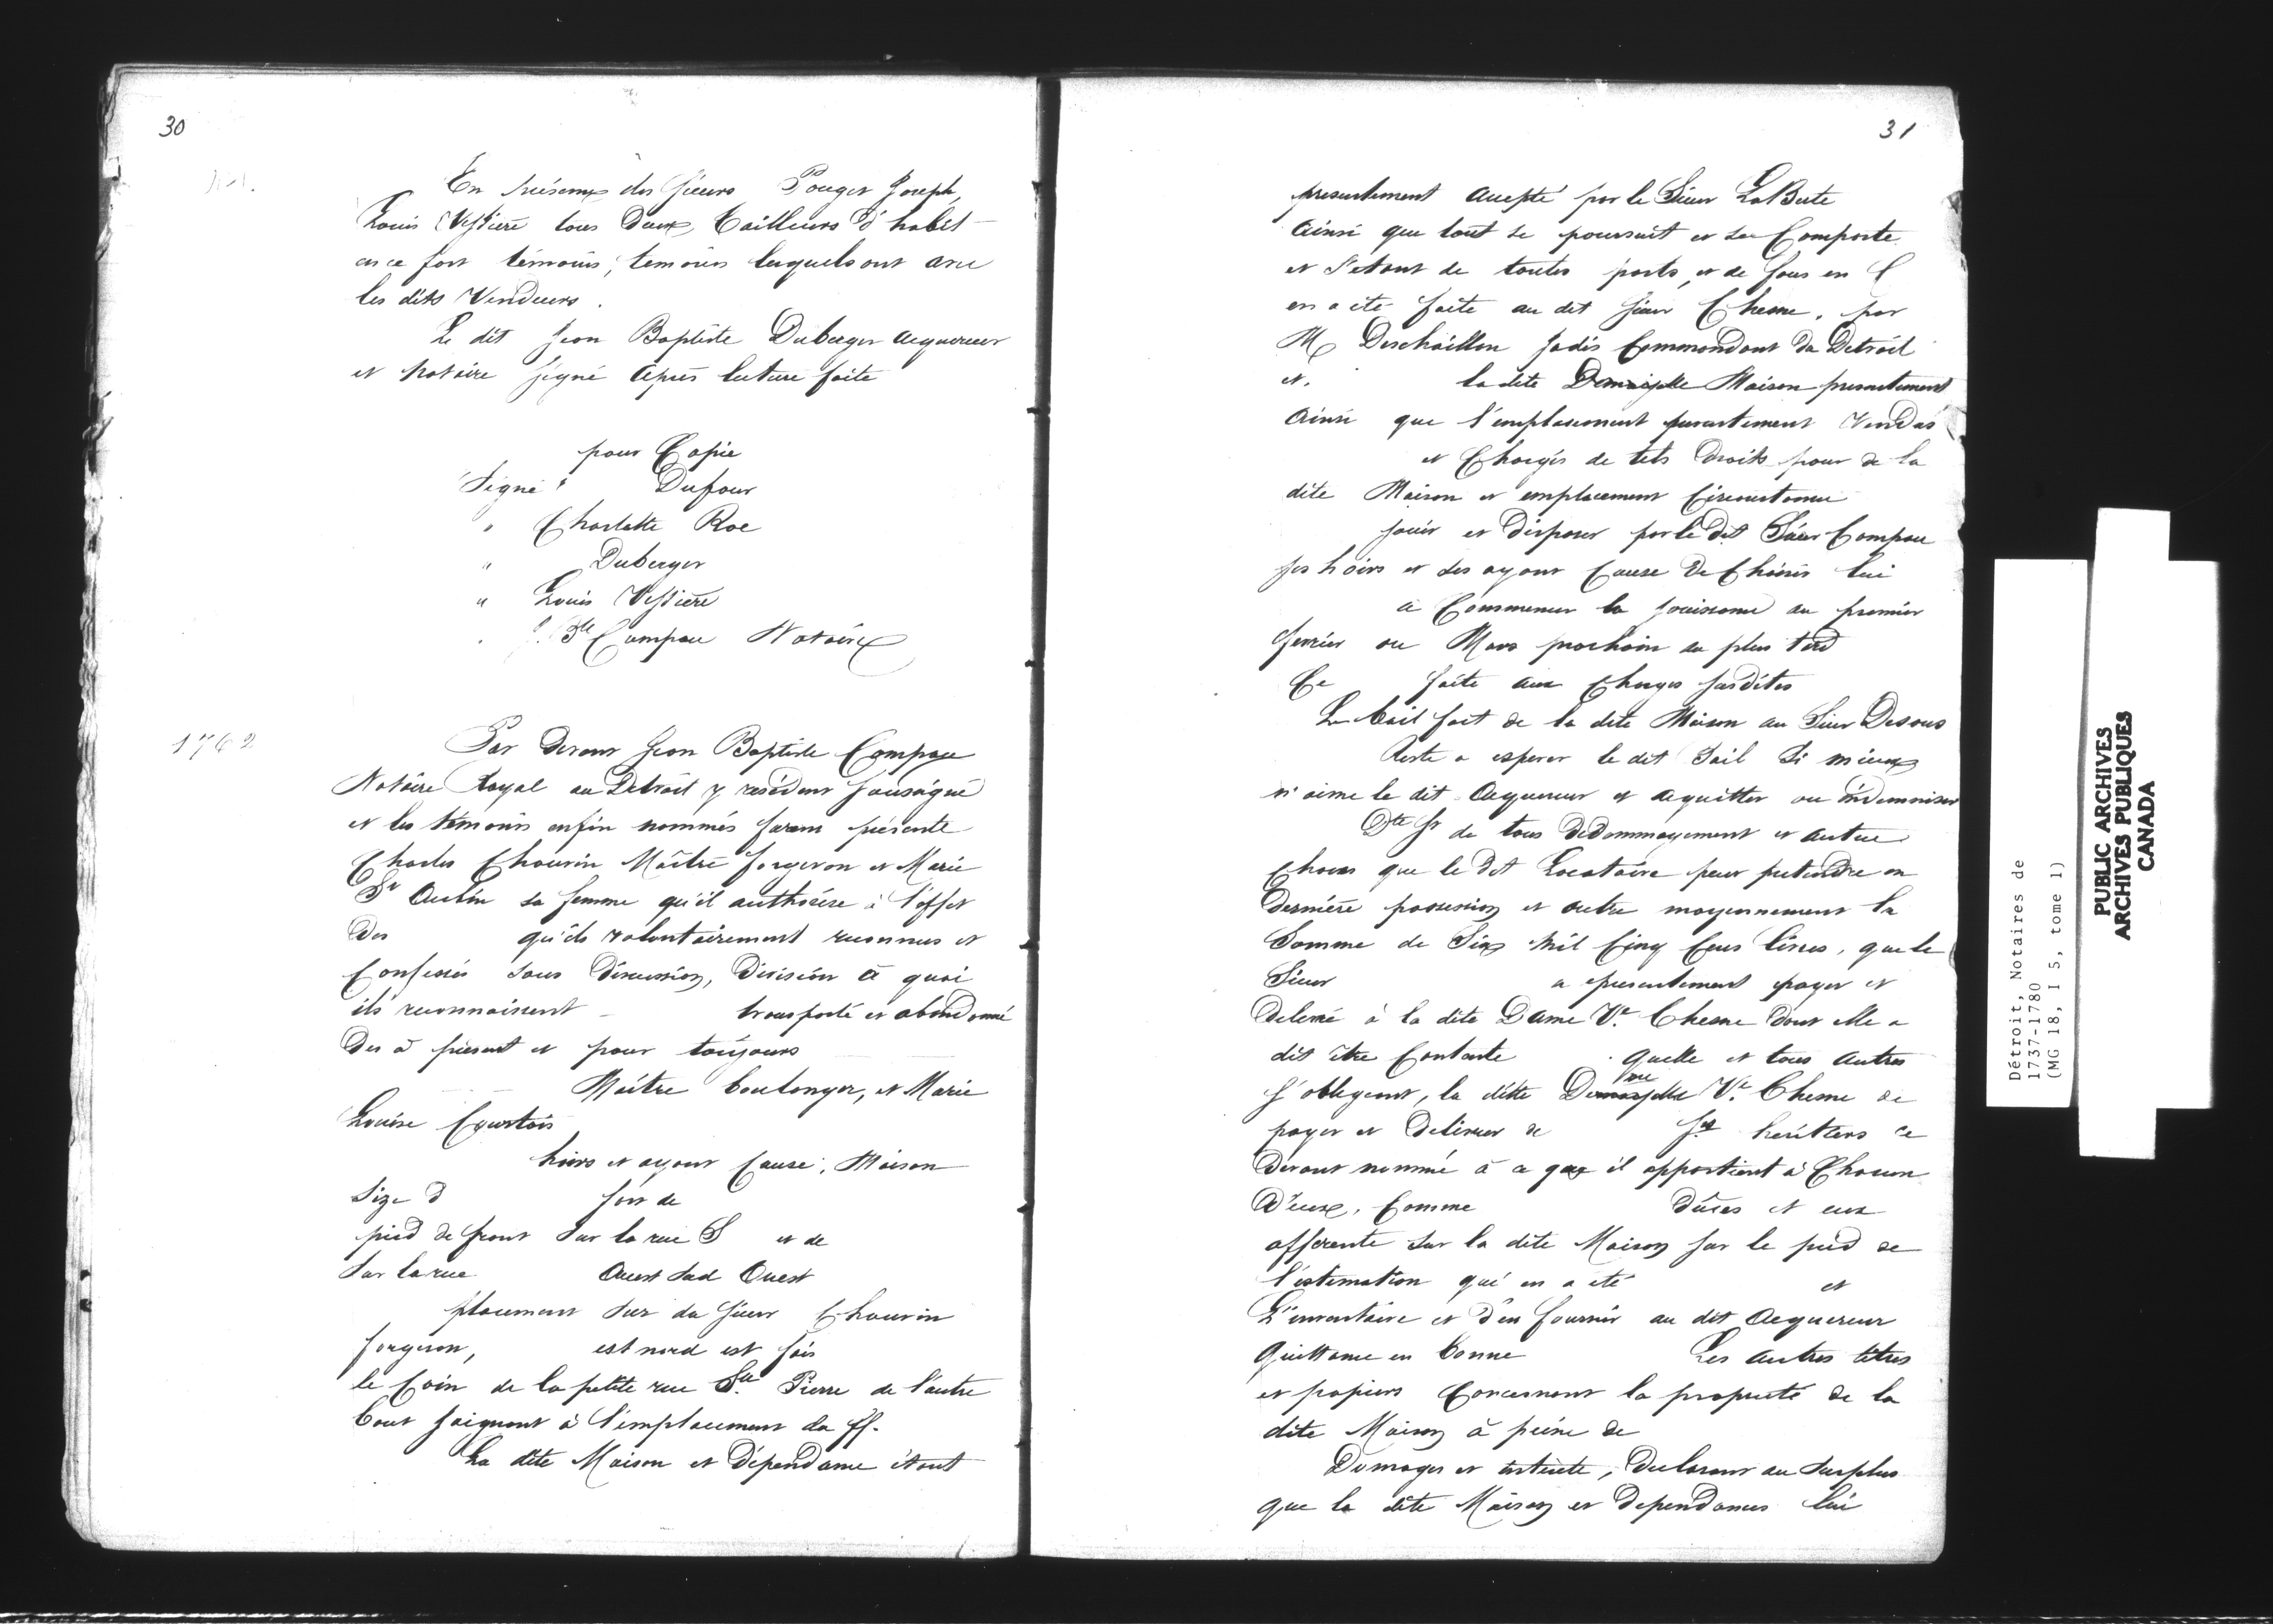 30
En présence des sieurs Pouget Joseph,
Louis Vessiere tous Deux Tailleurs d'habit
en ce fort témoins, temoins lesquels ont avec
les dits Vendeurs.
Le dit Jean Baptiste Duberger acquereur
et notaire signé après lecture faite
pour Copie
Signé Dufour
" Charlotte Roe
" Duberger
" Louis Vessiere
" J. Bte Campau Notaire
1762
Par devant Jean Baptiste Campau
Notaire Royal au Détroit y résident sousigné
et les témoins enfin nommés furent présente
Charles Chauvin Maître forgeron et Marie
St Aubin sa femme qu'il authorise à l'effet
des qu'ils volontairement reconnus et
Confessés sous discussion, Division à quoi
ils reconnaissent transporté et abandonné
des à présent et pour toujours
Maître boulanger, et Marie
Louise Courtois
hoirs et ayant Cause, Maison
size d fort de
pied de front sur la rue S et de
sur la rue Ouest Sud Ouest
placement sur du sieur Chauvin
forgeron, est nord est fais
le Coin de la petite rue Ste Pierre de l'autre
bout joignant à l'emplacement du ff.
La dite Maison et Dépendance étant
31
presentement accepté par le Sieur LaBute
Ainsi que tout se poursuit et se Comporte
et s'etant de toutes parts, et de fous en C
en a été faite au dit sieur Chesne, par
M Deschaillon jadis Commandant du Detroit
et. la dite Demoiselle Maison presentement
Ainsi que l'emplacement presentement Vendus
et Chargés de tels Droits pour de la
dite Maison et emplacement Circonstance
jouir et disposer par le dit Sieur Campau
ses hoirs et des ayant Cause De Choisis lui
à Commencer la jouissance au premier
fevrier ou Mars prochain au plus tard
Ce faite aux Charges susdites
Le bail fait de la dite Maison au Sieur Desous
Reste a esperer le dit bail si mieux
n'aime le dit Acquereur et acquitter ou indemniser
Dte Sr de tous Dedommagement et autre
Choses que le Dit Locataire peut pretendre en
dernière possession et outre moyennement la
Somme de Six Mil Cinq Cens livres, que le
Sieur a presentement payer et
Delivré à la dite Dame Ve. Chesne dont elle a
dit être Contante quelle et tous autres
s'obligeant, la ditte Demoiselle me Ve. Chesne de
payer et Delivrer de ses heritiers ce
devant nommé à ce que il appartient à Chacun
D'eux, Comme dûes et eux
afferente sur la dite Maison sur le pied de
l'estimation qui en a été et
L'inventaire et d'en fournir au dit Acquereur
Quittance en bonne Les autres titres
et papiers Concernant la propriété de la
dite Maison à peine de
Domages et interêts, Declarant au surplus
que la dite Maison et dependances lui
Détroit, Notaires de
1737-1780
(MG 18, I 5, tome 1)
PUBLIC ARCHIVES
ARCHIVES PUBLIQUES
CANADA